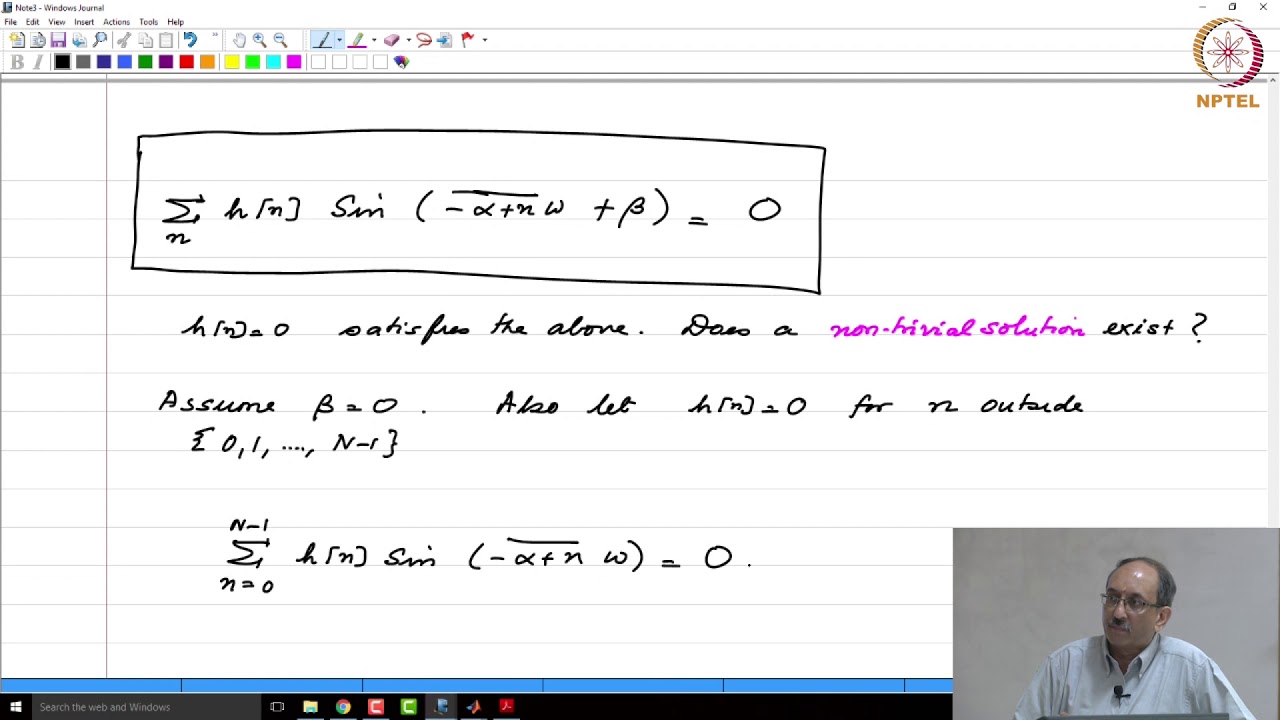 Note3 - Windows Journal
File Edit View Insert Actions Tools Help
B I
NPTEL
∑ₙ h[n] Sin ( \overline{-α+n} ω + β ) = 0
h[n]=0 satisfies the above. Does a non-trivial solution exist ?
Assume β=0. Also let h[n]=0 for n outside
{ 0,1, ...., N-1 }
N-1
∑ h[n] sin ( \overline{-α+n} ω) = 0.
n=0
Search the web and Windows